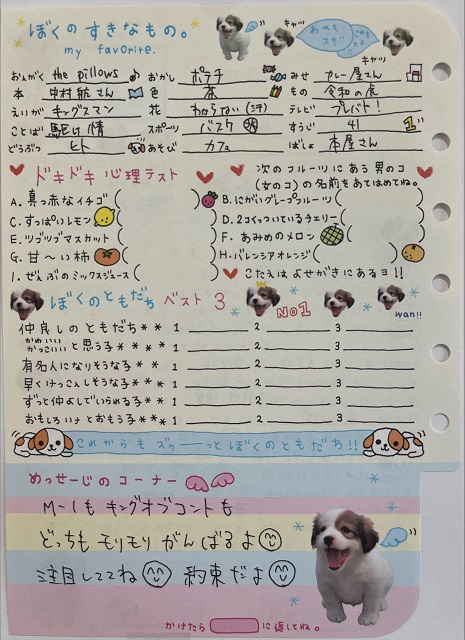 ぼくのすきなもの。
my favorite.
おんがく the pillows おかし ポテチ みせ カレー屋さん
本 中村航さん 色 茶 もの 令和の虎
えいが キングスマン 花 わからない(汗) テレビ プレバト!
ことば 駆け情 スポーツ バスケ すうじ 41
どうぶつ ヒト あそび カフェ ばしょ 本屋さん
キャッ キャッ
ドキドキ心理テスト
次のフルーツにある男のコ
(女のコ)の名前をあてはめてね。
A. 真っ赤なイチゴ( ) B. にがいグレープフルーツ( )
C. すっぱいレモン( ) D. 2コくっついてるチェリー( )
E. ツブツブマスカット( ) F. あみめのメロン( )
G. 甘〜い柿( ) H. バレンシアオレンジ( )
I. ぜんぶのミックスジュース( ) こたえはよせがきにあるヨ!!
ぼくのともだちベスト3 No1 wan!!
仲良しのともだち** 1 2 3
かわいい
かっこいいと思う子**** 1 2 3
有名人になりそうな子* 1 2 3
早くけっこんしそうな子* 1 2 3
ずっと仲よしでいられる子* 1 2 3
おもしろいナとおもう子*** 1 2 3
これからもズゥーーっとぼくのともだち!!
めっせーじのコーナー
M-1もキングオブコントも
どっちもモリモリがんばるよ
注目しててね 約束だよ
かけたら に返してね。